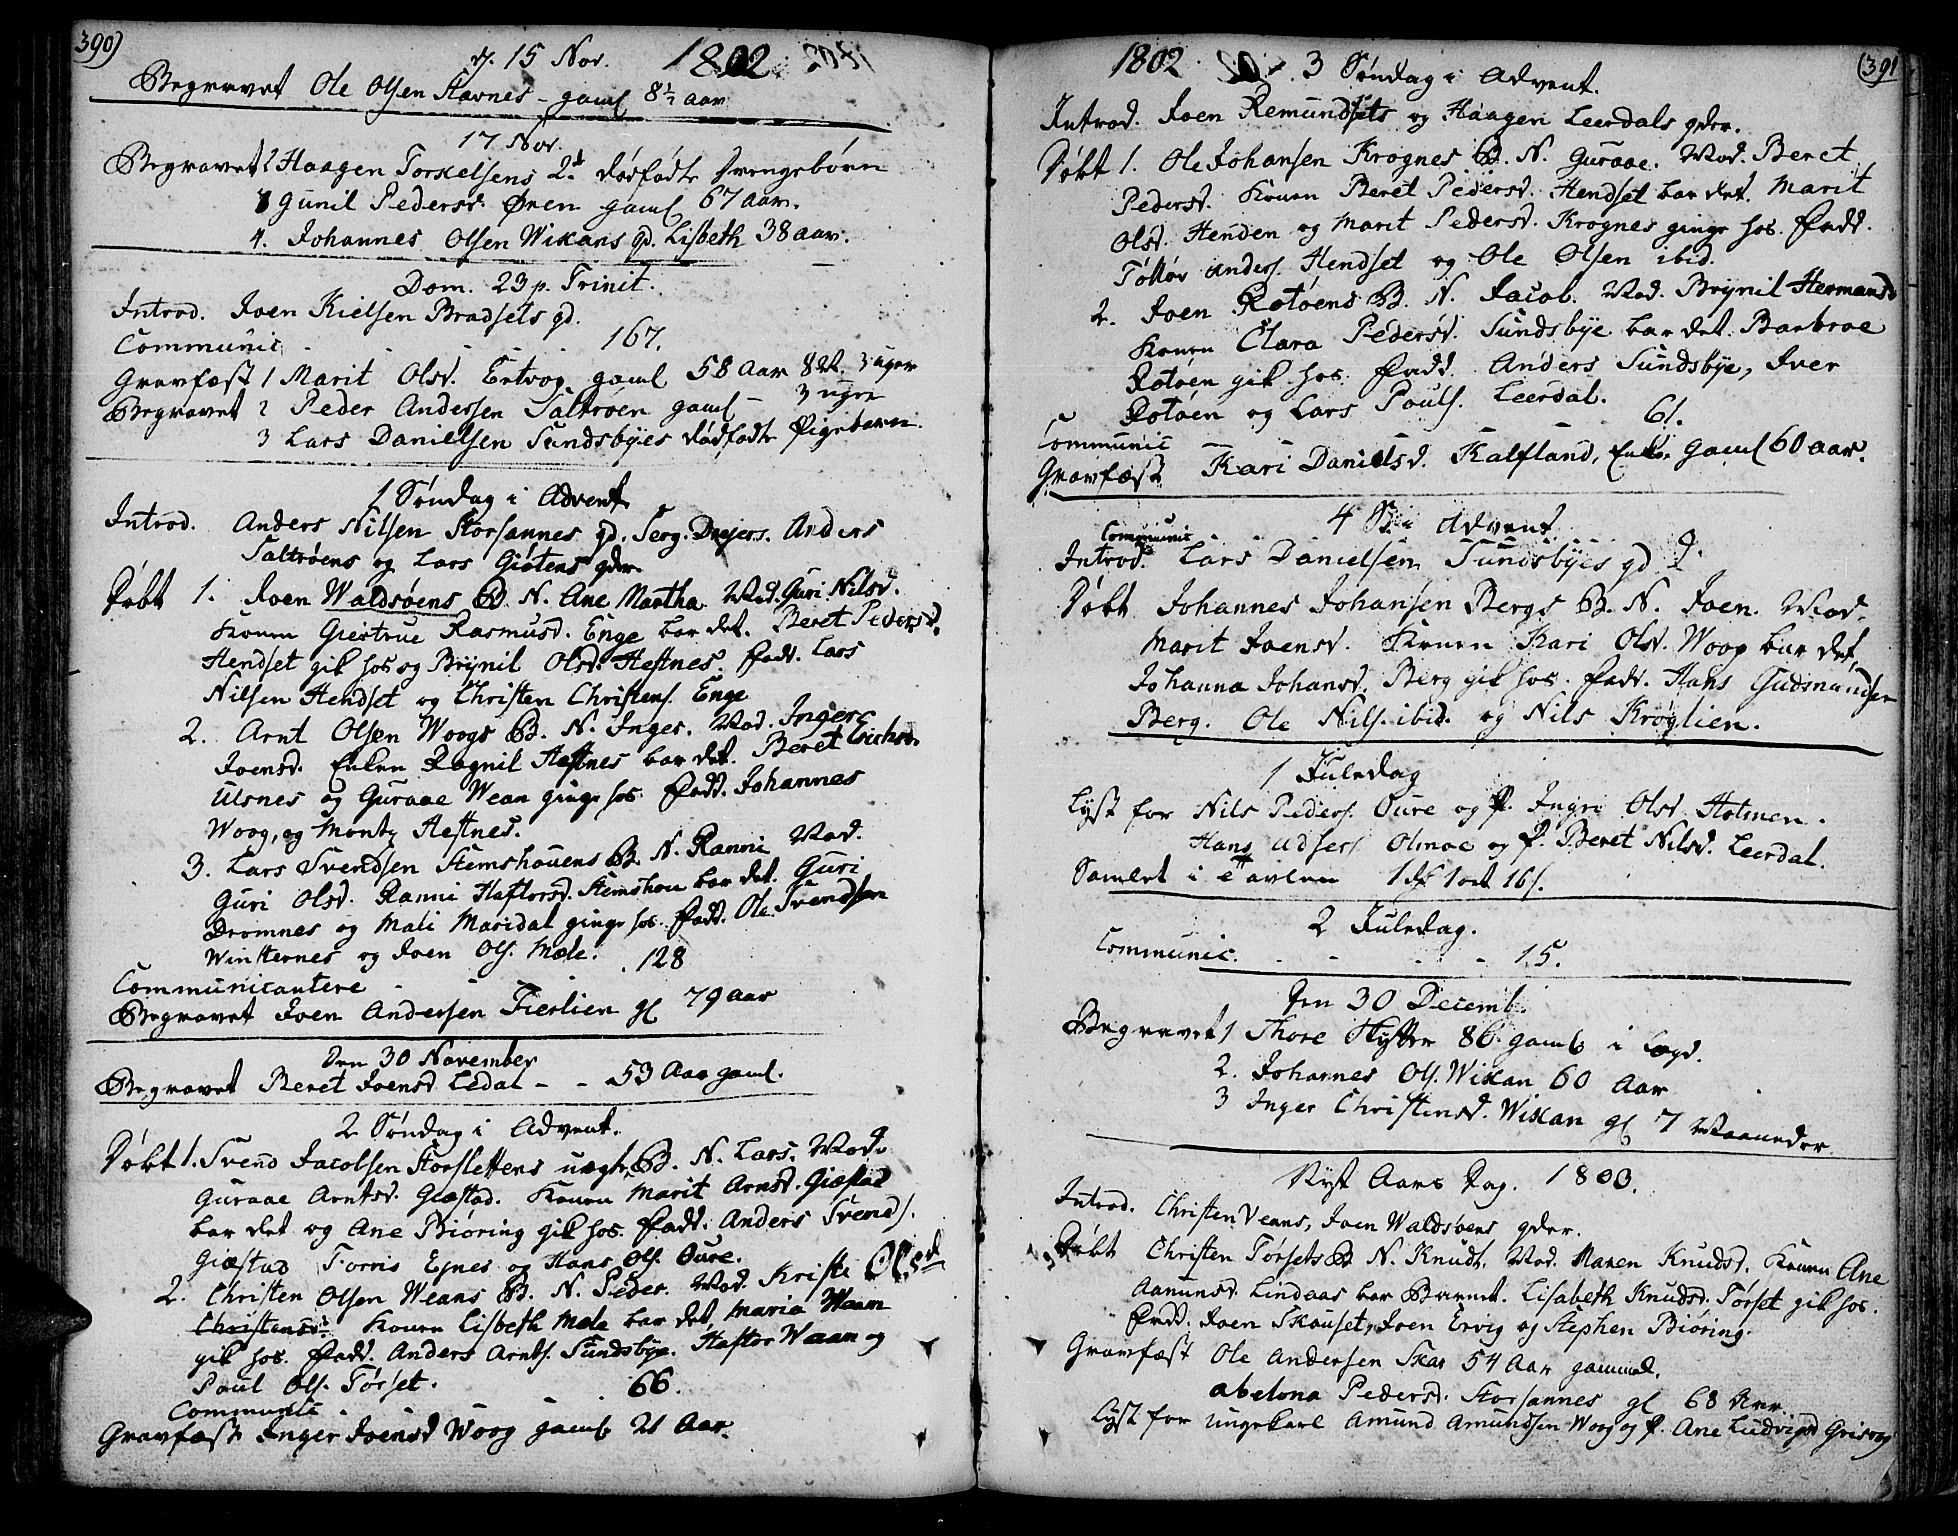 390)
d. 15 Nov. 1802
Begravet Ole Olsen Stavnes - gaml 8 1/2 Aar
17 Nov.
Begravet 2 Haagen Torkelsens 2de dødfødte Drengebørn
Gunil Pedersd. Øren gaml 67 Aar.
4. Johannes Olsen Wikans gd. Lisbeth 38 aar.
Dom. 23 p. Trinit.
Introd. Joen Kielsen Bradsets gd.
Communic - - - - 167.
Gravfæst 1 Marit Olsd. Ertvog gaml 58 Aar 3 uger
Begravet 2 Peder Andersen Saltrøen gaml - 3 ugr
3 Lars Danielsen Sundsbyes dødfødte Pigebarn.
1 Søndag i Advent
Introd. Anders Nilsen Storsannes gd. Serg. Drejers. Anders
Saltrøens og Lars Giøtens gdr.
Døbt 1. Joen Waldsøens B. N. Ane Martha Mod. Guri Nilsd.
Konen Giertrue Rasmusd. Enge bar det. Beret Pedersd.
Hendset gik hos og Brynil Olsd. Hestnes. Fadd. Lars
Nilsen Hendset og Christen Christens. Enge
2. Arnt Olsen Woogs B. N. Inger. Mod. Inger
Joensd. Enken Ragnil Hestnes bar det. Beret
Ulsnes og Guraae Wean ginge hos. Fadd. Johannes
Woog, og Montz Hestnes.
3. Lars Svendsen Stemshouens B. N. Ranni Mod.
Guri Olsd. Ranni Haftorsd. Stemshou bar det. Guri
Dromnes og Mali Maridal ginge hos. Fadd. Ole Svendsen
Winsternes og Joen Ols. Mele.
Communicantere - 128
Begravet Joen Andersen Fierlien gl 79 Aar
Den 30 November
Begravet Beret Joensd Ledal - - 53 Aar gaml.
2 Søndag i Advent.
Døbt 1. Svend Jacobsen Storslettens uægte B. N. Lars. Mod.
Guraae Arntsd. Giæstad. Konen Marit Arnsd. Giæstad
bar det og Ane Biøring gik hos. Fadd. Anders Svends.
Giæstad Torris Egnes og Hans Ols. Oure.
2. Christen Olsen Weans B. N. Peder. Mod. Kristi Olsd
Christensd. Konen Lisbeth Mele bar det, Maria Weam
gik hos. Fadd. Anders Arnts. Sundsbye. Haftor Waam og
Poul Ols. Tørset.
Communic - - - 66.
Gravfæst Inger Joensd Woog gaml 21 Aar.
1802 3 Søndag i Advent. (391
Introd. Joen Remundsets og Haagen Leerdals gdr.
Døbt 1. Ole Johansen Krognes B. N. Guraae. Mod. Beret
Pedersd. Konen Beret Pedersd. Hendset bar det. Marit
Olsd. Henden og Marit Pedersd. Krognes ginge hos. Fadd.
Tolløv Anders. Hendset og Ole Olsen ibid.
2. Joen Rotøens B. N. Jacob. Mod. Brynil Hermansd
Konen Clara Pedersd. Sundsbye bar det. Barbroe
Rotøen gik hos. Fadd. Anders Sundsbye, Iver
Rotøen og Lars Pouls. Leerdal.
Communic - - - 61.
Gravfæst Kari Danielsd. Kalfland, Enke gaml 60 aar.
4 S. i Advent
Communic
Introd. Lars Danielsen Sundsbyes gd
Døbt Johannes Johansen Bergs B. N. Joen. Mod.
Marit Joensd. Konen Kari Olsd. Woog bar det,
Johanna Johansd. Berg gik hos. Fadd. Hans Gudmundsen
Berg. Ole Nils. ibid. og Nils Krøglien.
1 Juledag
Lyst for Nils Peders. Oure og P. Ingri Olsd. Holmen.
Hans Olmoe og P. Beret Nilsd. Leerdal.
Samlet i Tavlen 1 1 ort 16 s.
2 Juledag.
Communic. - - - - 15.
Den 30 Decemb.
Begravet 1 Thore Flytte 86 gaml i Lægd.
2. Johannes Ols. Wikan 60 Aar
3 Inger Christensd. Wikan gl 7 Maaneder
Nyt Aars Dag. 1803.
Introd. Christen Veans, Joen Waldsøens gdr.
Døbt Christen Tørsets B. N. Knudt. Mod. Maren Knudsd. Konen Ane
Aamunsd. Lindaas bar Barnet. Lisabeth Knudsd. Tørset gik hos.
Fadd. Joen Skouset, Joen Ervig og Stephen Biøring.
Gravfæst Ole Andersen Skar 54 Aar gammel.
Abelona Pedersd. Storsannes gl 68 Aar.
Lyst for ungekarl Amund Amundsen Woog og P. Ane Ludvigsd Grisvog